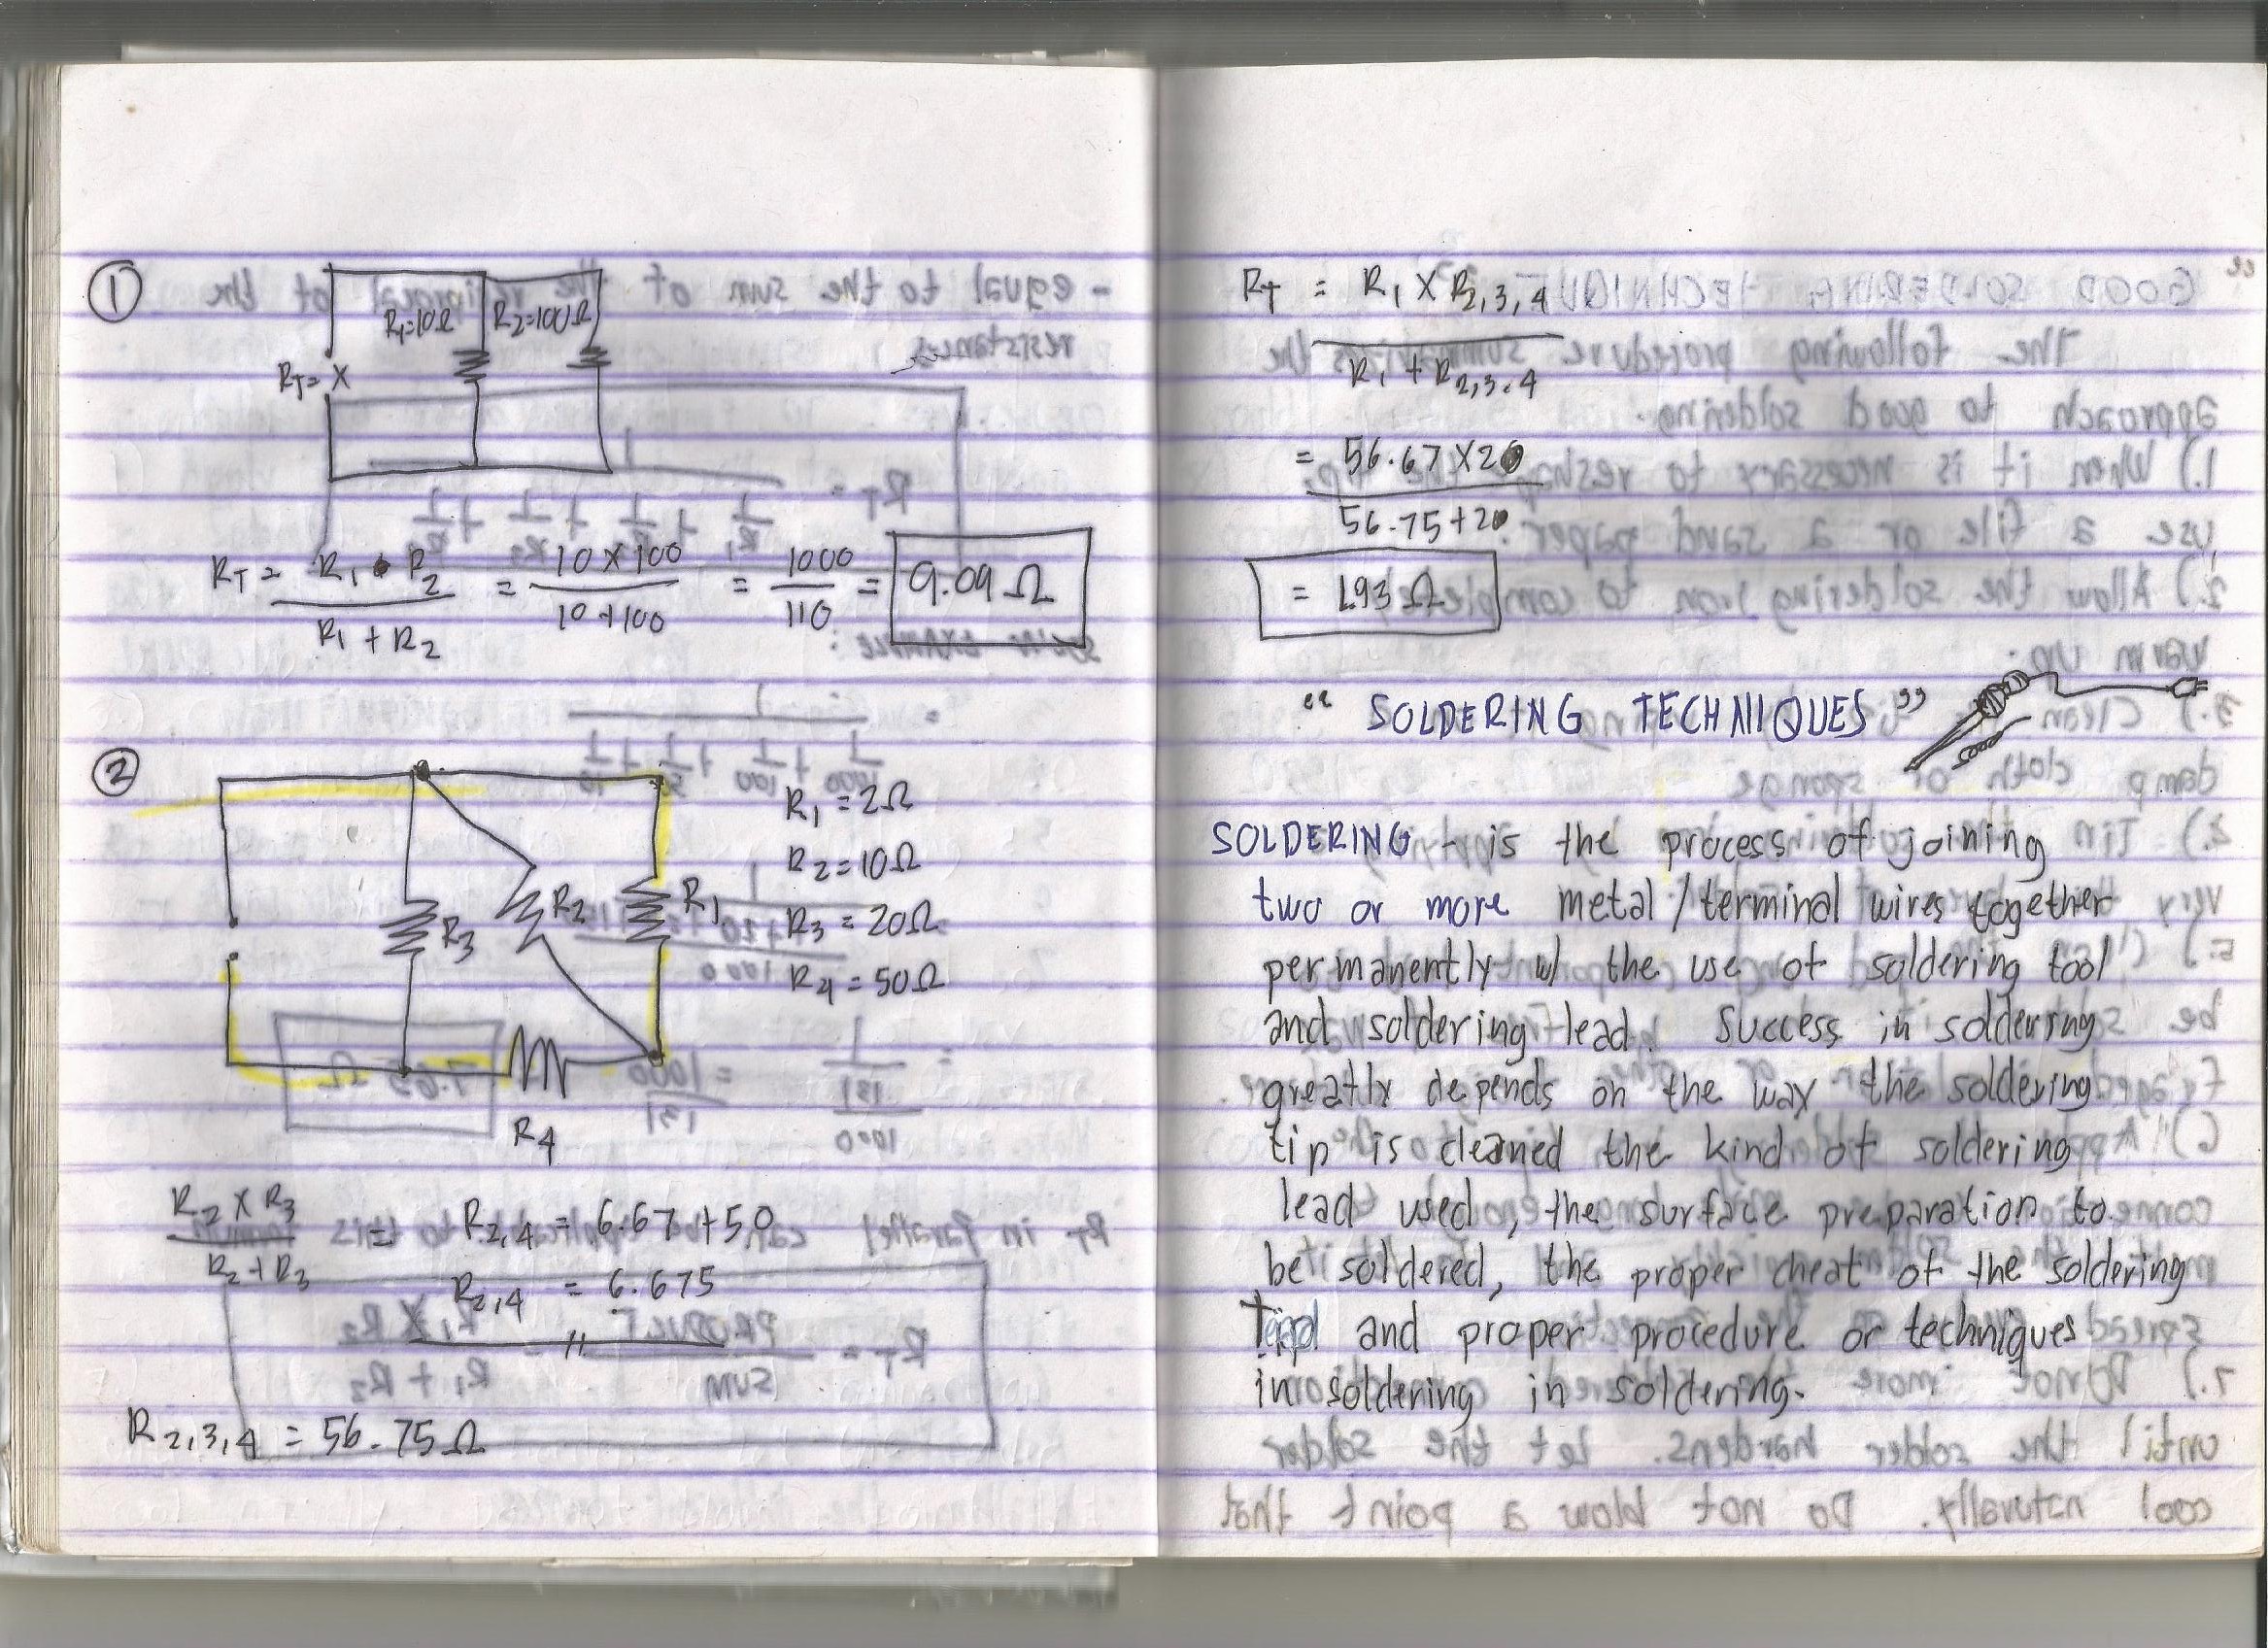 ①
R₁=10Ω R₂=100Ω
R_T= X
R_T = R₁ • R₂ / R₁ + R₂ = 10 x 100 / 10+100 = 1000 / 110 = 9.09 Ω
②
R₁ = 2Ω
R₂ = 10Ω
R₃ = 20Ω
R₄ = 50Ω
R₃ R₂ R₁
R₄
R₂ X R₃ / R₂ + R₃ = R₂,₄ = 6.67 + 50
R₂,₄ = 6.675
"
R₂,₃,₄ = 56.75Ω
R_T = R₁ X R₂,₃,₄
R₁ + R₂,₃,₄
= 56.67 X 20
56.75+20
= 1.93 Ω
“ SOLDERING TECHNIQUES ”
SOLDERING - is the process of joining
two or more metal / terminal wires together
permanently w/ the use of soldering tool
and soldering lead. Success in soldering
greatly depends on the way the soldering
tip is cleaned the kind of soldering
lead used, the surface preparation to
be soldered, the proper cheat of the soldering
and proper procedure or techniques
in soldering in soldering.